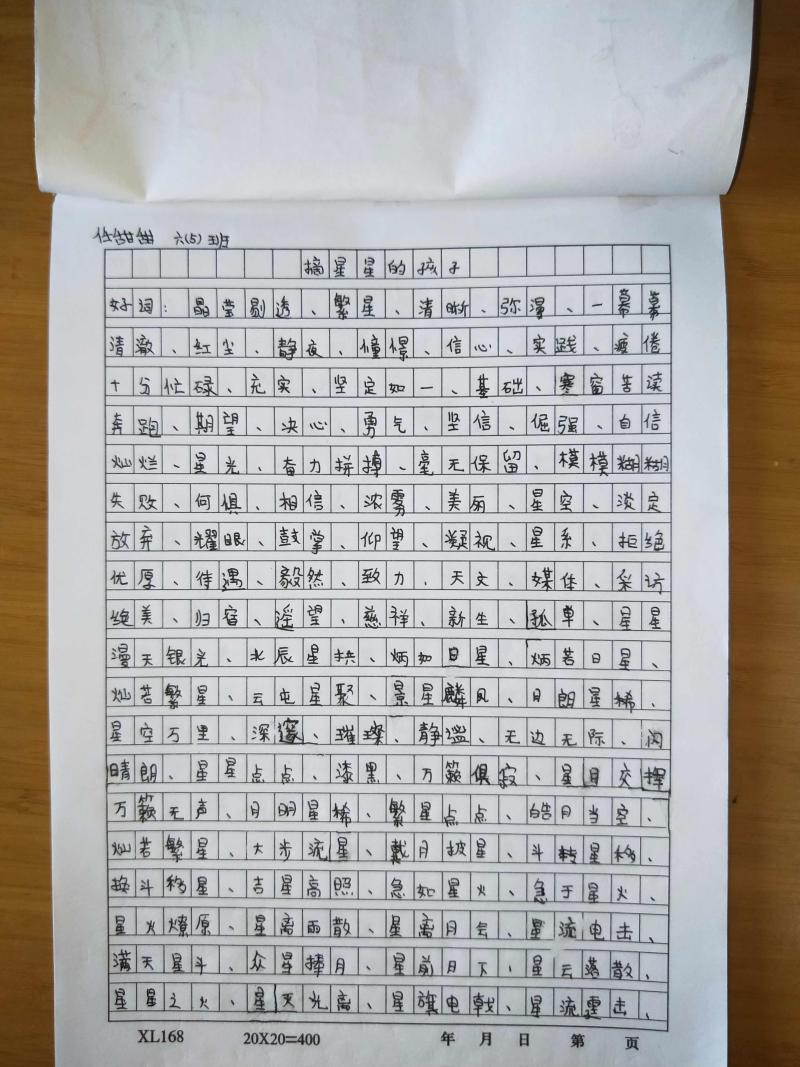 任甜甜 六(5)班
摘星星的孩子
好词：晶莹剔透、繁星、清晰、弥漫、一幕幕
清澈、红尘、静夜、憧憬、信心、实践、疲倦
十分忙碌、充实、坚定如一、基础、寒窗苦读
奔跑、期望、决心、勇气、坚信、倔强、自信
灿烂、星光、奋力拼搏、毫无保留、模模糊糊
失败、何惧、相信、浓雾、美丽、星空、淡定
放弃、耀眼、鼓掌、仰望、凝视、星系、拒绝
优厚、待遇、毅然、致力、天文、媒体、采访
绝美、归宿、遥望、慈祥、新生、孤单、星星
漫天银光、北辰星拱、炳如日星、炳若日星、
灿若繁星、云屯星聚、景星麟凤、日朗星稀、
星空万里、深邃、璀璨、静谧、无边无际、闪
晴朗、星星点点、漆黑、万籁俱寂、星目交挥
万籁无声、月明星稀、繁星点点、皓月当空、
灿若繁星、大步流星、戴月披星、斗转星移、
换斗移星、吉星高照、急如星火、急于星火、
星火燎原、星离雨散、星离月会、星流电击、
满天星斗、众星捧月、星前月下、星云落散、
星星之火、星灭光离、星旗电戟、星流霆击、
XL168 20X20=400 年 月 日 第 页